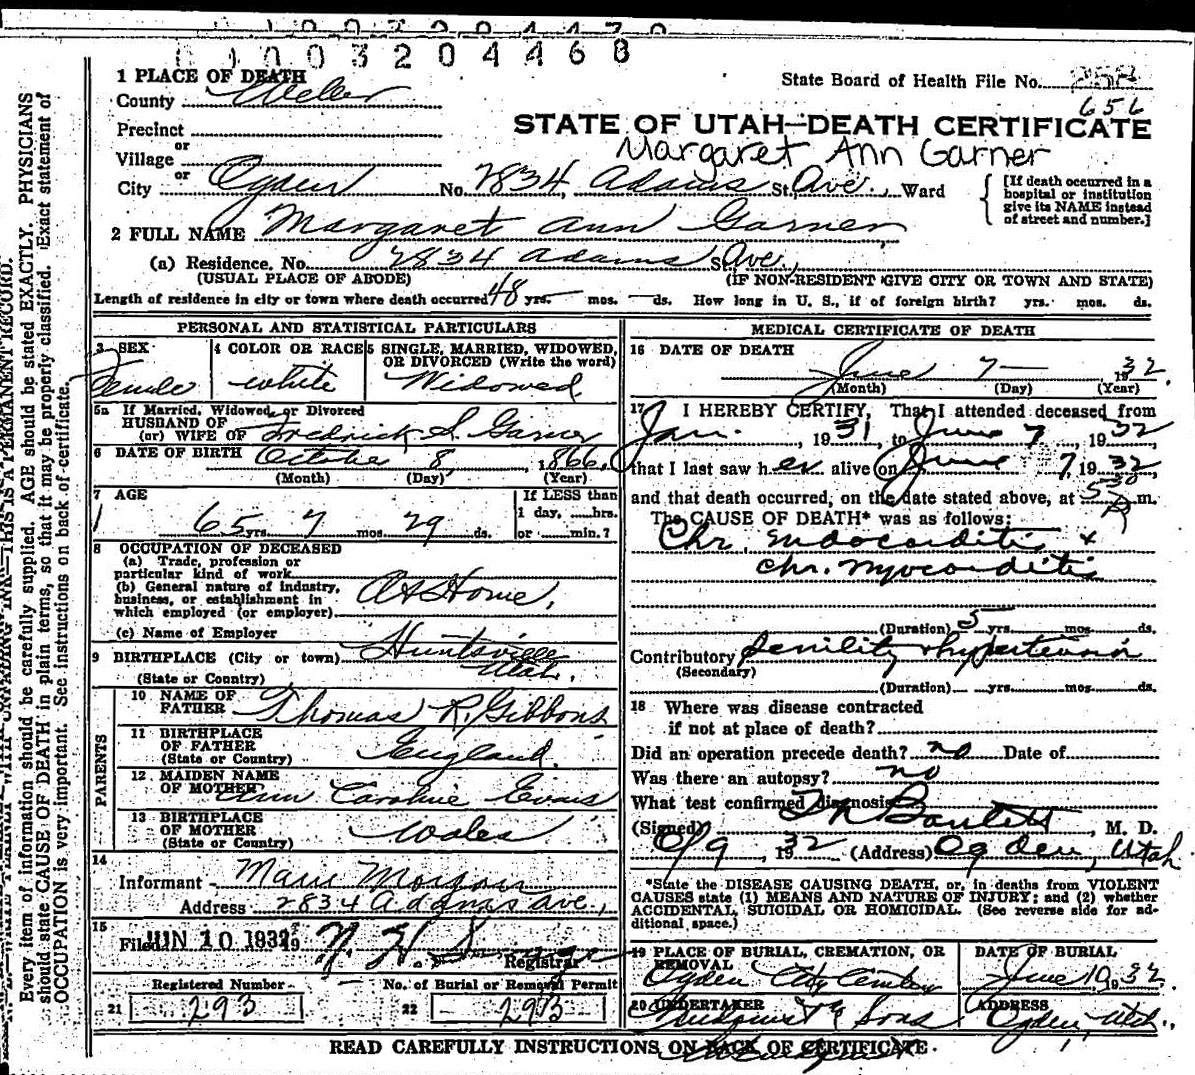 0 1 0 0 3 2 0 4 4 6 8
1 PLACE OF DEATH
State Board of Health File No.
County Weber
656
Precinct
STATE OF UTAH—DEATH CERTIFICATE
or
Margaret Ann Garner
Village
or
City Ogden No. 2834 Adams St. Ave., Ward
[If death occurred in a
hospital or institution
give its NAME instead
of street and number.]
2 FULL NAME Margaret Ann Garner
(a) Residence, No. 2834 Adams St. Ave.,
(USUAL PLACE OF ABODE) (IF NON-RESIDENT GIVE CITY OR TOWN AND STATE)
Length of residence in city or town where death occurred 48 yrs. mos. ds. How long in U. S., if of foreign birth? yrs. mos. ds.
PERSONAL AND STATISTICAL PARTICULARS
3 SEX
Female
4 COLOR OR RACE
White
5 SINGLE, MARRIED, WIDOWED,
OR DIVORCED (Write the word)
Widowed
5a If Married, Widowed, or Divorced
HUSBAND OF
(or) WIFE OF Fredrick S. Garner
6 DATE OF BIRTH October 8, 1866
(Month) (Day) (Year)
7 AGE
65 yrs. 7 mos. 29 ds.
If LESS than
1 day, hrs.
or min.?
8 OCCUPATION OF DECEASED
(a) Trade, profession or
particular kind of work
(b) General nature of industry,
business, or establishment in
which employed (or employer)
At Home,
(c) Name of Employer
9 BIRTHPLACE (City or town) Huntsville
(State or Country) Utah.
PARENTS
10 NAME OF
FATHER Thomas R. Gibbons
11 BIRTHPLACE
OF FATHER
(State or Country) England.
12 MAIDEN NAME
OF MOTHER Ann Caroline Evans
13 BIRTHPLACE
OF MOTHER
(State or Country) Wales
14
Informant Marie Morgan
Address 2834 Adams Ave.,
15
Filed JUN 10 1932 19
Registrar
Registered Number
21 293
No. of Burial or Removal Permit
22 293
MEDICAL CERTIFICATE OF DEATH
16 DATE OF DEATH
June 7 1932
(Month) (Day) (Year)
17 I HEREBY CERTIFY, That I attended deceased from
Jan. , 1931, to June 7 , 1932
that I last saw her alive on June 7, 1932
and that death occurred, on the date stated above, at 5 30 P m.
The CAUSE OF DEATH* was as follows:
Chr. Endocarditis &
chr. myocarditis
(Duration) 5 yrs. mos. ds.
Contributory Senility & hypertension
(Secondary)
(Duration) yrs. mos. ds.
18 Where was disease contracted
if not at place of death?
Did an operation precede death? no Date of
Was there an autopsy? no
What test confirmed diagnosis
(Signed) , M. D.
6/9, 1932 (Address) Ogden, Utah
*State the DISEASE CAUSING DEATH, or, in deaths from VIOLENT
CAUSES state (1) MEANS AND NATURE OF INJURY; and (2) whether
ACCIDENTAL, SUICIDAL OR HOMICIDAL. (See reverse side for ad-
ditional space.)
19 PLACE OF BURIAL, CREMATION, OR
REMOVAL
Ogden City Cemetery
DATE OF BURIAL
June 10 1932
20 UNDERTAKER
& Sons
ADDRESS
Ogden, Utah.
READ CAREFULLY INSTRUCTIONS ON BACK OF CERTIFICATE.
Every item of information should be carefully supplied. AGE should be stated EXACTLY. PHYSICIANS
should state CAUSE OF DEATH in plain terms, so that it may be properly classified. Exact statement of
OCCUPATION is very important. See instructions on back of certificate.